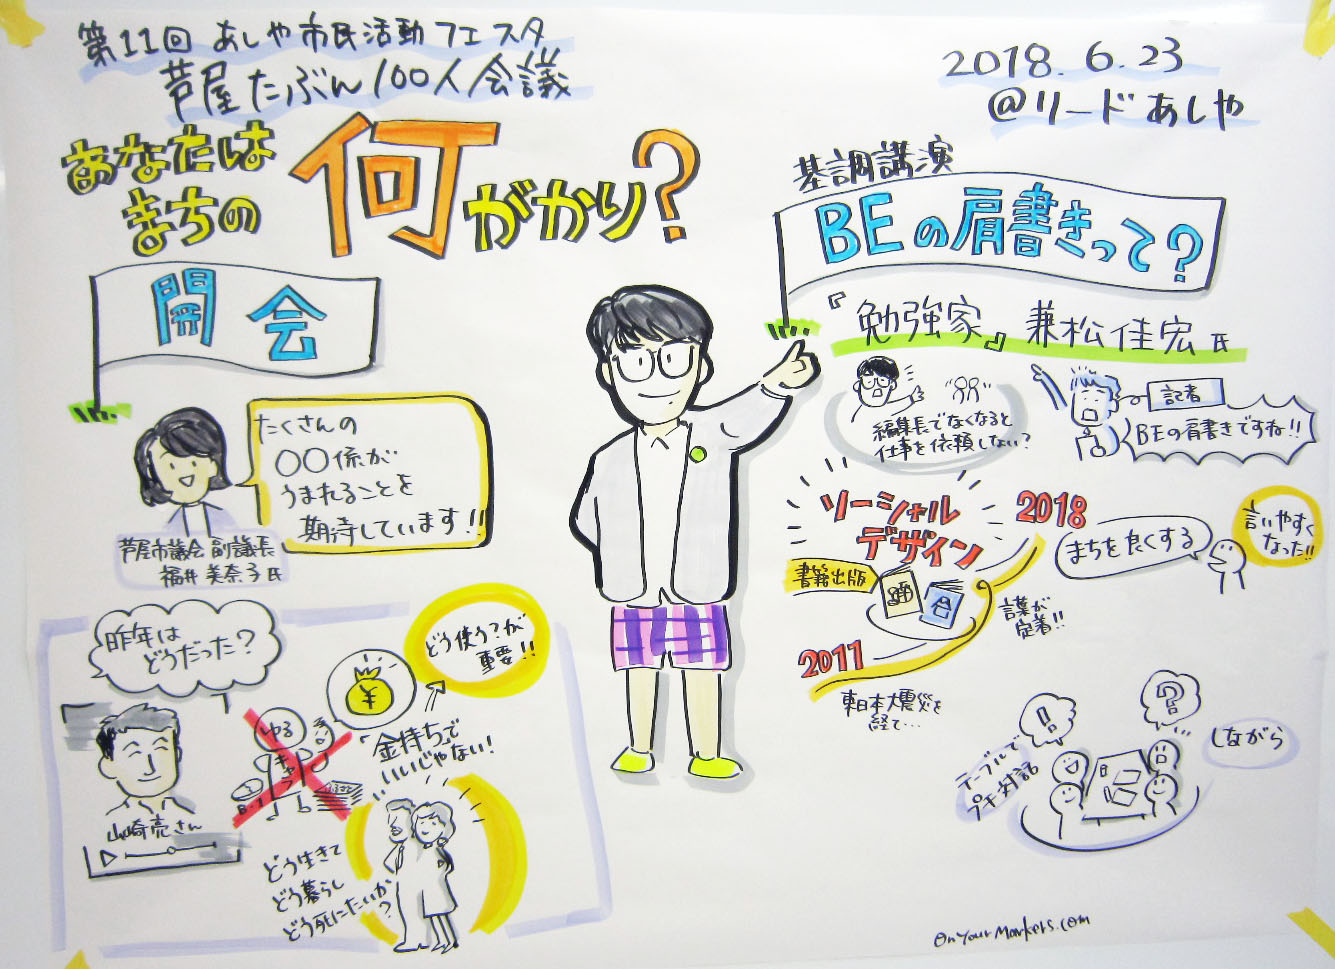 第11回 あしや市民活動フェスタ
芦屋たぶん100人会議
2018.6.23
@リードあしや
あなたは
まちの
何がかり?
開会
たくさんの
〇〇係が
うまれることを
期待しています!!
芦屋市議会 副議長
福井 美奈子氏
昨年は
どうだった?
山崎亮さん
ゆる
キャラ
¥
どう使う?が
重要!!
金持ちで
いいじゃない!
どう生きて
どう暮らし
どう死にたいか
?
基調講演
BEの肩書きって?
『勉強家』 兼松佳宏氏
編集長でなくなると
仕事を依頼しない?
記者
BEの肩書きですね!!
ソーシャル
デザイン
書籍出版
2011
東日本大震災を
経て…
2018
言葉が
定着!!
まちを良くする
言いやすく
なった!!
テーブルで
プチ対話
!!
?
しながら
OnYourMarkers.com